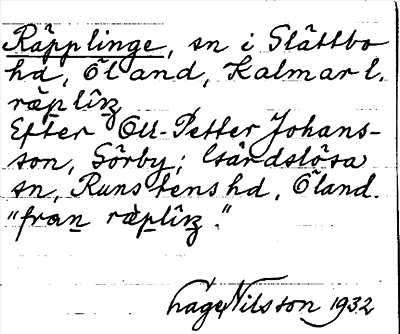 Räpplinge, sn i Slättbo
hd, Öland, Kalmar l.
räpliŋ
Efter Ott-Petter Johans-
son, Sörby; Gårdslösa
sn, Runstens hd, Öland.
"fran räpliŋ."
Åage Nilsson 1932